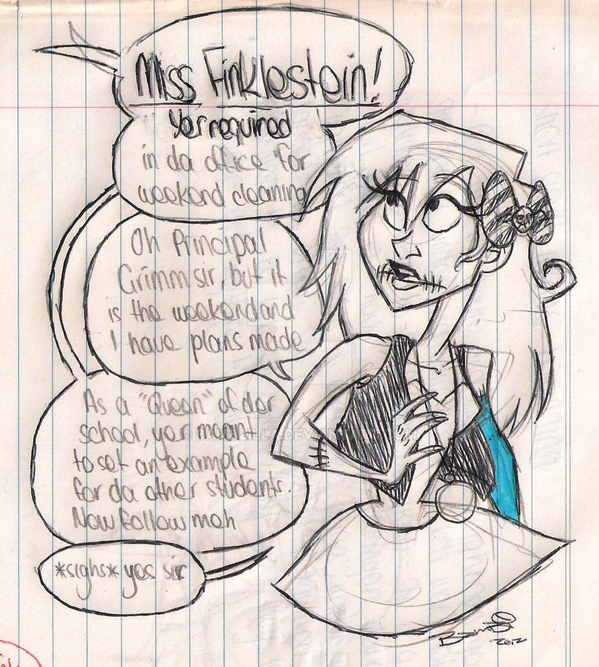 Miss Finklestein!
Yer required
in da office for
weekend cleaning
Oh Principal
Grimm sir, but it
is the weekend and
I have plans made
As a "Queen" of der
school, yer meant
to set an example
for da other students.
Now follow meh
*sighs* yes sir
2012